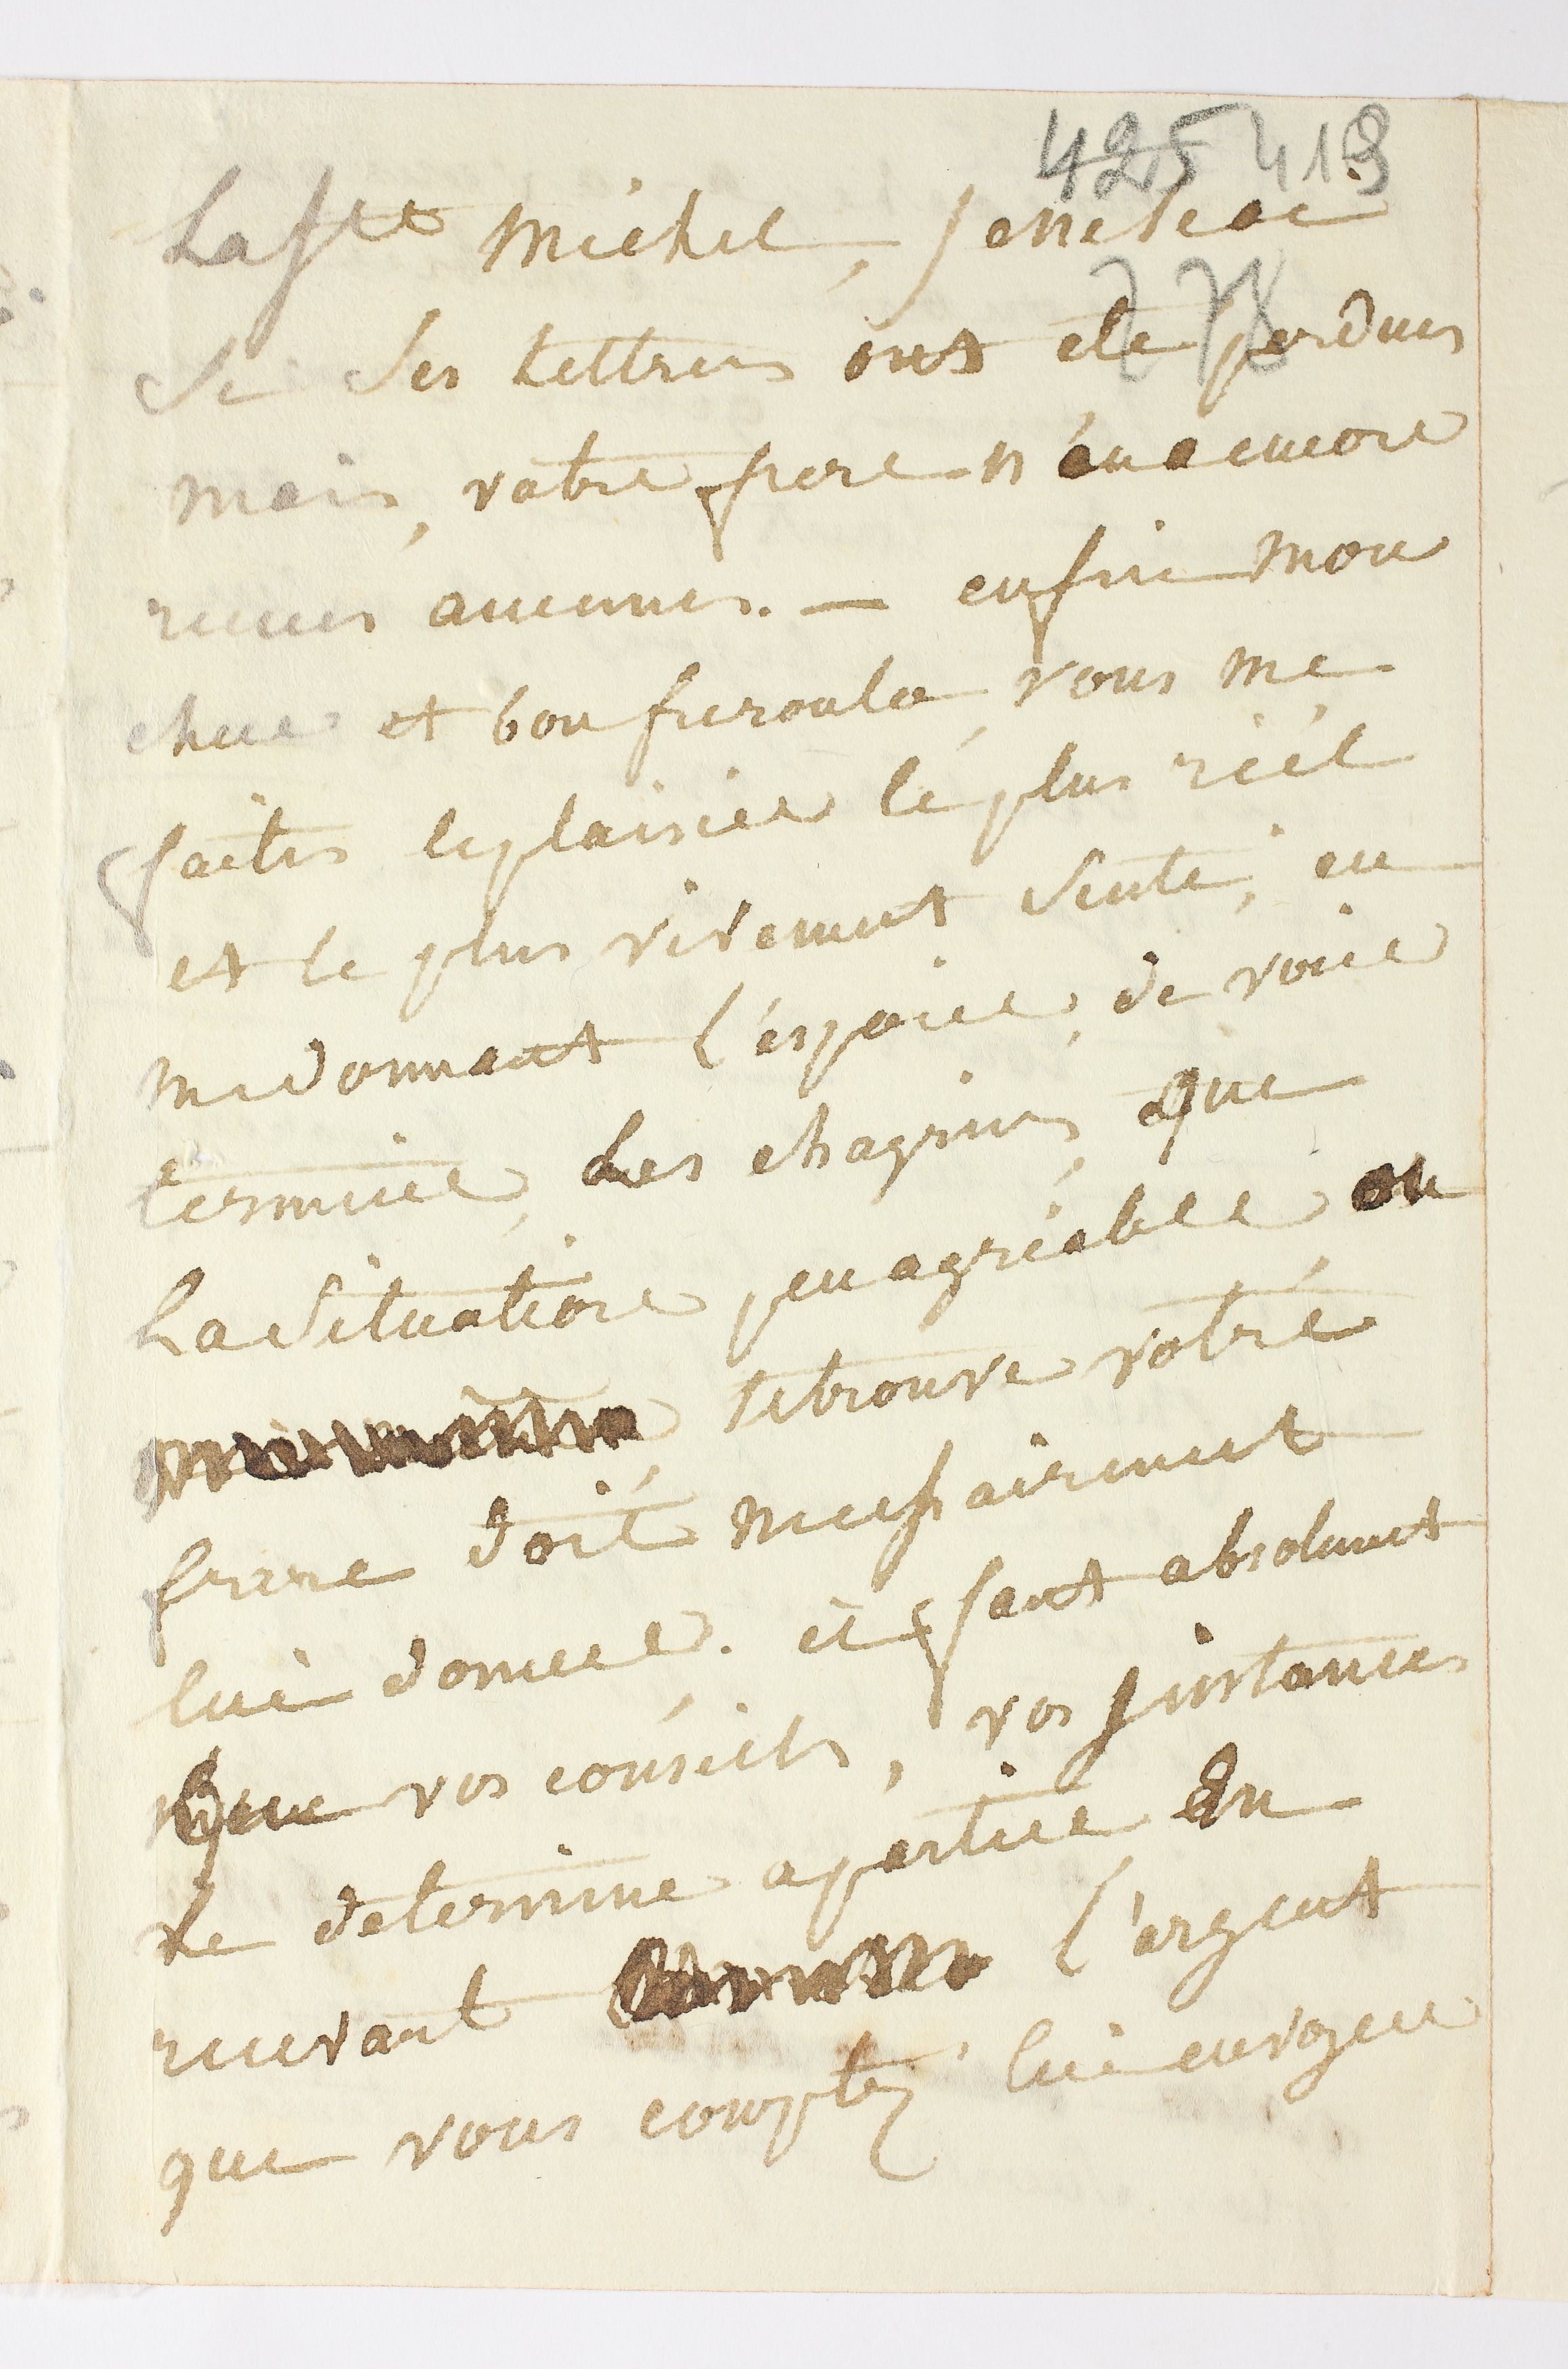 425 418
La fte Michel, je ne scai
78
Si Ses Lettres ont été perdues
Mais, votre frere n'en a encore
recues aucunes. — enfin Mon
cher et bon frerouló vous me
faites le plaisier le plus réél
et le plus vivement Senti, en
me donnant l'espoire, de voire
terminée, Les chagrins, que
La Situatione peu agréable ou
se trouve votre
frere doit necessairement
lui donner. il faut absolument
Que vos conseils, vos instances
Le determine a partire En
recevant l'argent
que vous comptez lui envoyer